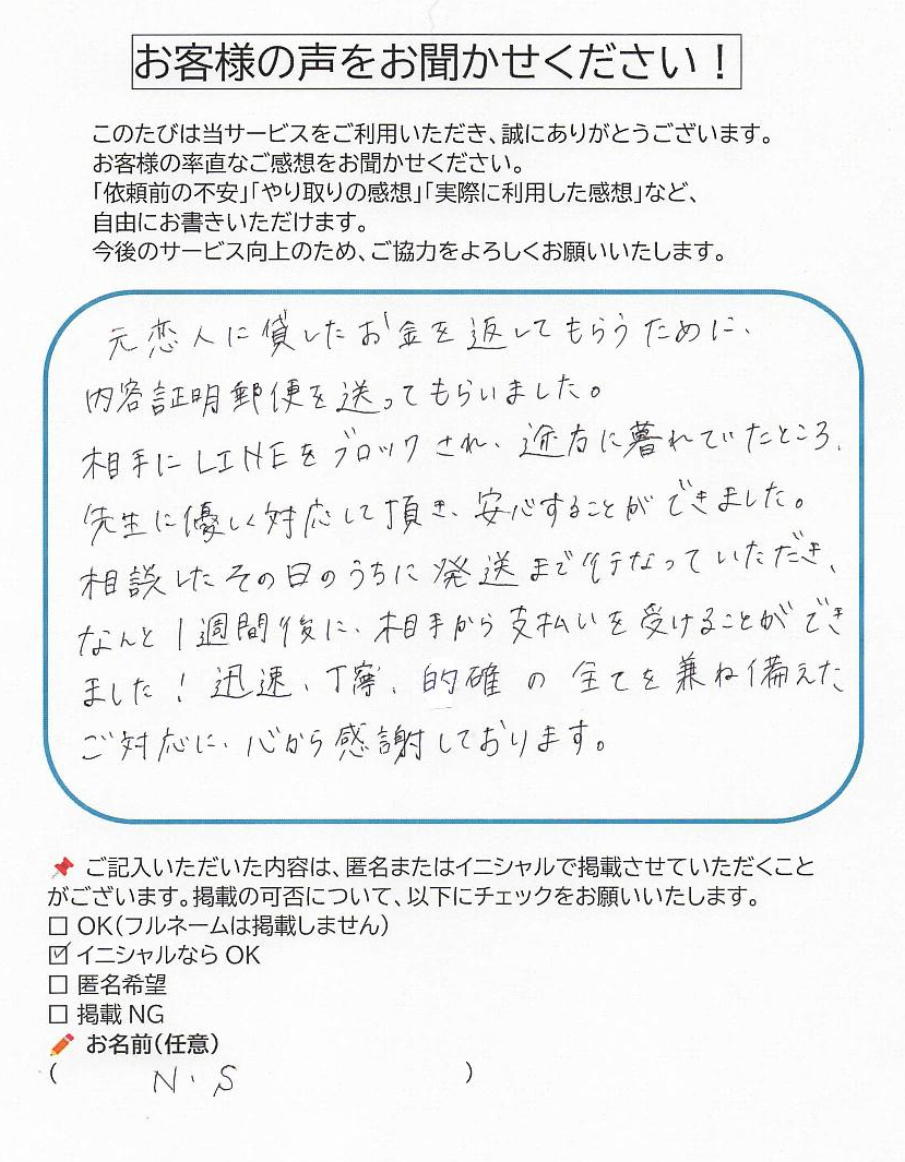 お客様の声をお聞かせください！
このたびは当サービスをご利用いただき、誠にありがとうございます。
お客様の率直なご感想をお聞かせください。
「依頼前の不安」「やり取りの感想」「実際に利用した感想」など、
自由にお書きいただけます。
今後のサービス向上のため、ご協力をよろしくお願いいたします。
元恋人に貸したお金を返してもらうために、
内容証明郵便を送ってもらいました。
相手にLINEをブロックされ、途方に暮れていたところ、
先生に優しく対応して頂き、安心することができました。
相談したその日のうちに発送まで行なっていただき、
なんと1週間後に、相手から支払いを受けることができ
ました！迅速、丁寧、的確の全てを兼ね備えた
ご対応に、心から感謝しております。
📌 ご記入いただいた内容は、匿名またはイニシャルで掲載させていただくこと
がございます。掲載の可否について、以下にチェックをお願いいたします。
☐ OK（フルネームは掲載しません）
☑ イニシャルなら OK
☐ 匿名希望
☐ 掲載 NG
✏️ お名前（任意）
（ N・S ）